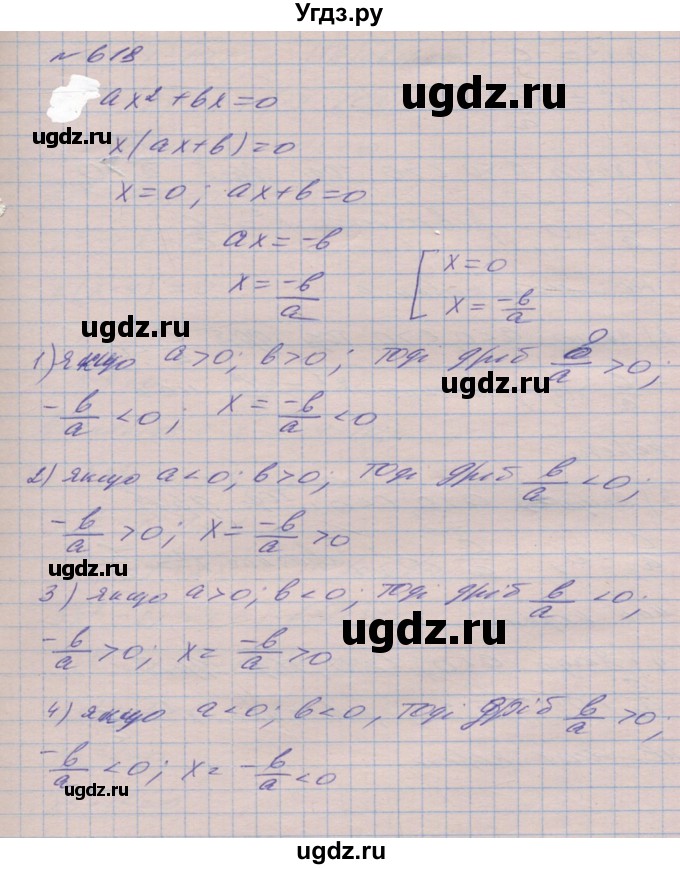 Угдз.ру
№618
ugdz.ru
ax2+bx=0
ugdz.ru
x(ax+b)=0
x=0; ax+b=0
ax=-b
x=-b/a
[x=0
x=-b/a
ugdz.ru
1) якщо a>0; b>0; тоді дріб b/a>0;
ugdz.ru
-b/a<0; x=-b/a<0
2) якщо a<0; b>0; тоді дріб b/a<0;
-b/a>0; x=-b/a>0
ugdz.ru
3) якщо a>0; b<0; тоді дріб b/a<0;
ugdz.ru
-b/a>0; x=-b/a>0
4) якщо a<0; b<0, тоді дріб b/a>0;
-b/a<0; x=-b/a<0
ugdz.ru
ugdz.ru
ugdz.ru